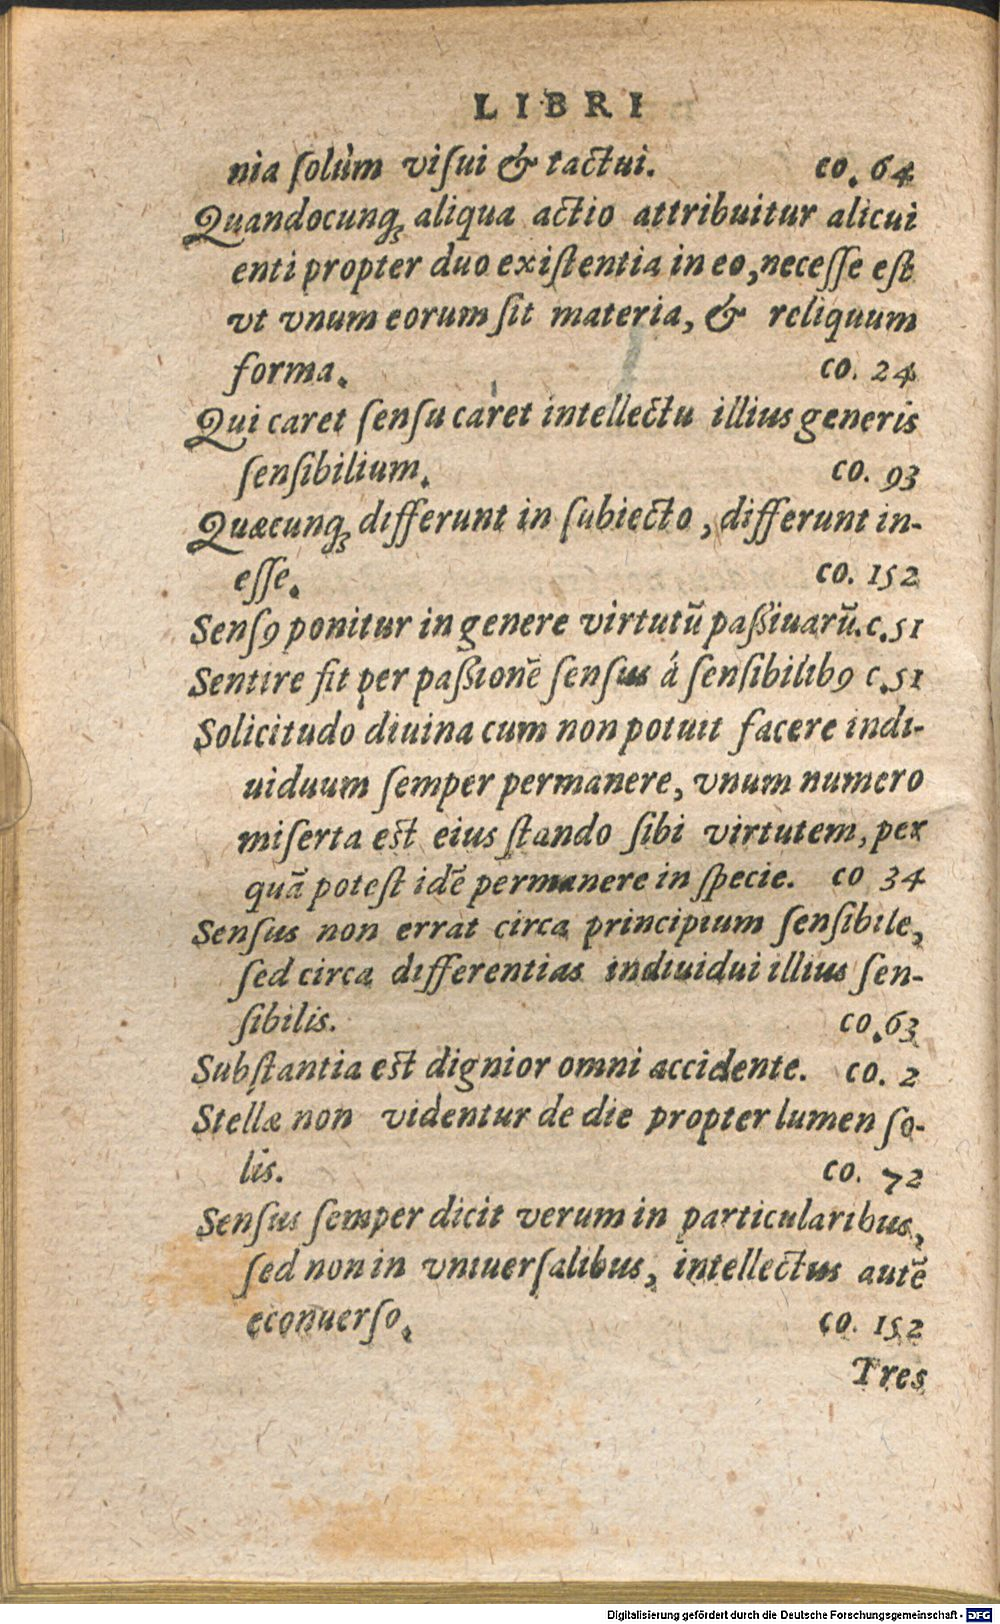 LIBRI
nia ſolùm viſui & tactui. co. 64
Quandocunq; aliqua actio attribuitur alicui
enti propter duo exiſtentia in eo, neceſſe eſt
vt vnum eorum ſit materia, & reliquum
forma. co. 24
Qui caret ſenſu caret intellectu illius generis
ſenſibilium. co. 93
Quæcunq; differunt in ſubiecto, differunt in-
eſſe. co. 152
Senſꝰ ponitur in genere virtutũ paßiuarũ. c. 51
Sentire fit per paßionẽ ſenſus á ſenſibilibꝰ c. 51
Solicitudo diuina cum non potuit facere indi-
uiduum ſemper permanere, vnum numero
miſerta eſt eius ſtando ſibi virtutem, per
quã poteſt idẽ permanere in ſpecie. co 34
Senſus non errat circa principium ſenſibile,
ſed circa differentias indiuidui illius ſen-
ſibilis. co. 63
Subſtantia eſt dignior omni accidente. co. 2
Stellæ non videntur de die propter lumen ſo-
lis. co. 72
Senſus ſemper dicit verum in particularibus,
ſed non in vniuerſalibus, intellectus autẽ
econuerſo. co. 152
Tres
Digitalisierung gefördert durch die Deutsche Forschungsgemeinschaft - DFG